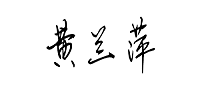 黄兰萍